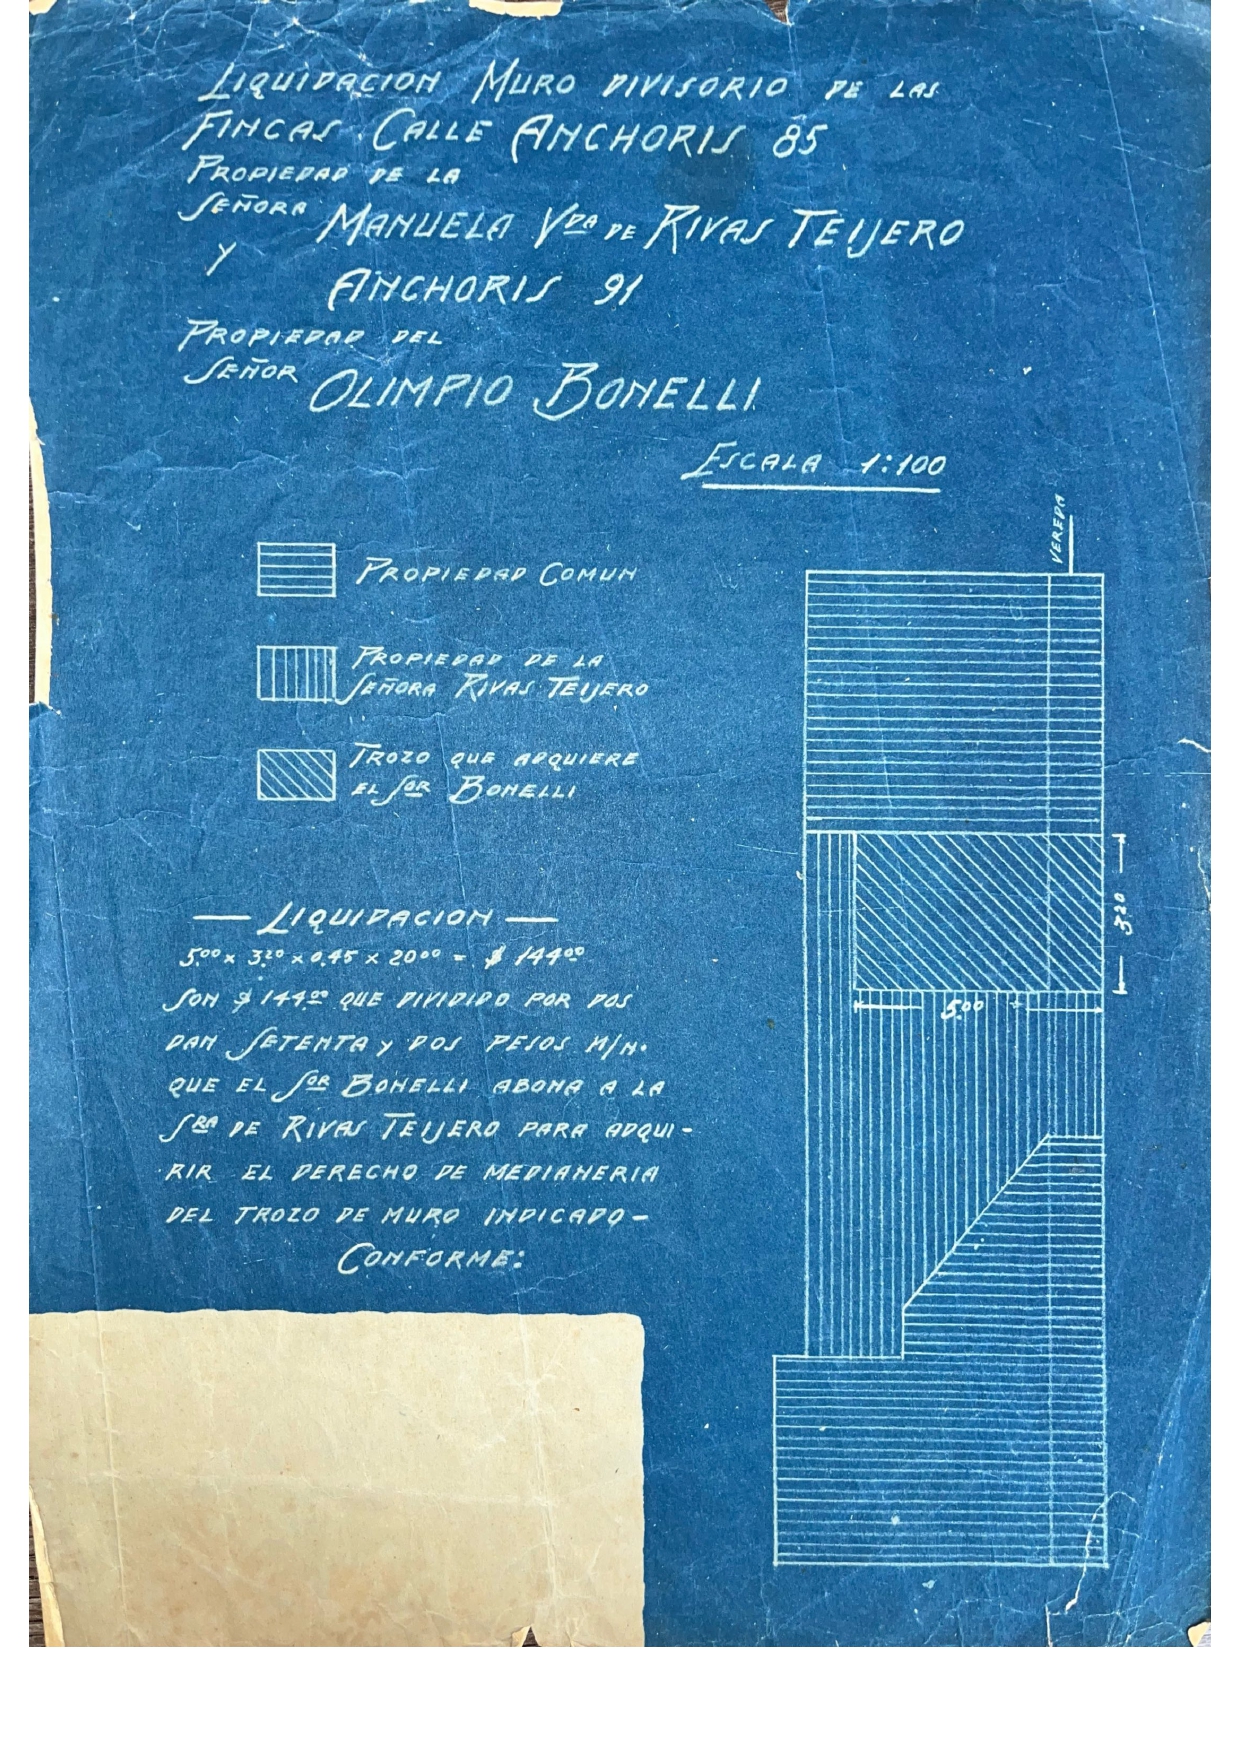 LIQUIDACION MURO DIVISORIO DE LAS
FINCAS CALLE ANCHORIS 85
PROPIEDAD DE LA
SEÑORA MANUELA Vᴰᴬ DE RIVAS TEIJERO
Y
ANCHORIS 91
PROPIEDAD DEL
SEÑOR OLIMPIO BONELLI
ESCALA 1:100
VEREDA
PROPIEDAD COMUN
PROPIEDAD DE LA
SEÑORA RIVAS TEIJERO
TROZO QUE ADQUIERE
EL Sᴼᴿ BONELLI
3.20
5.00
— LIQUIDACION —
5.00 x 3.20 x 0.45 x 20.00 = $ 144.00
SON $ 144.00 QUE DIVIDIDO POR DOS
DAN SETENTA Y DOS PESOS M/N.
QUE EL Sᴼᴿ BONELLI ABONA A LA
Sᴿᴬ DE RIVAS TEIJERO PARA ADQUI-
RIR EL DERECHO DE MEDIANERIA
DEL TROZO DE MURO INDICADO-
CONFORME: